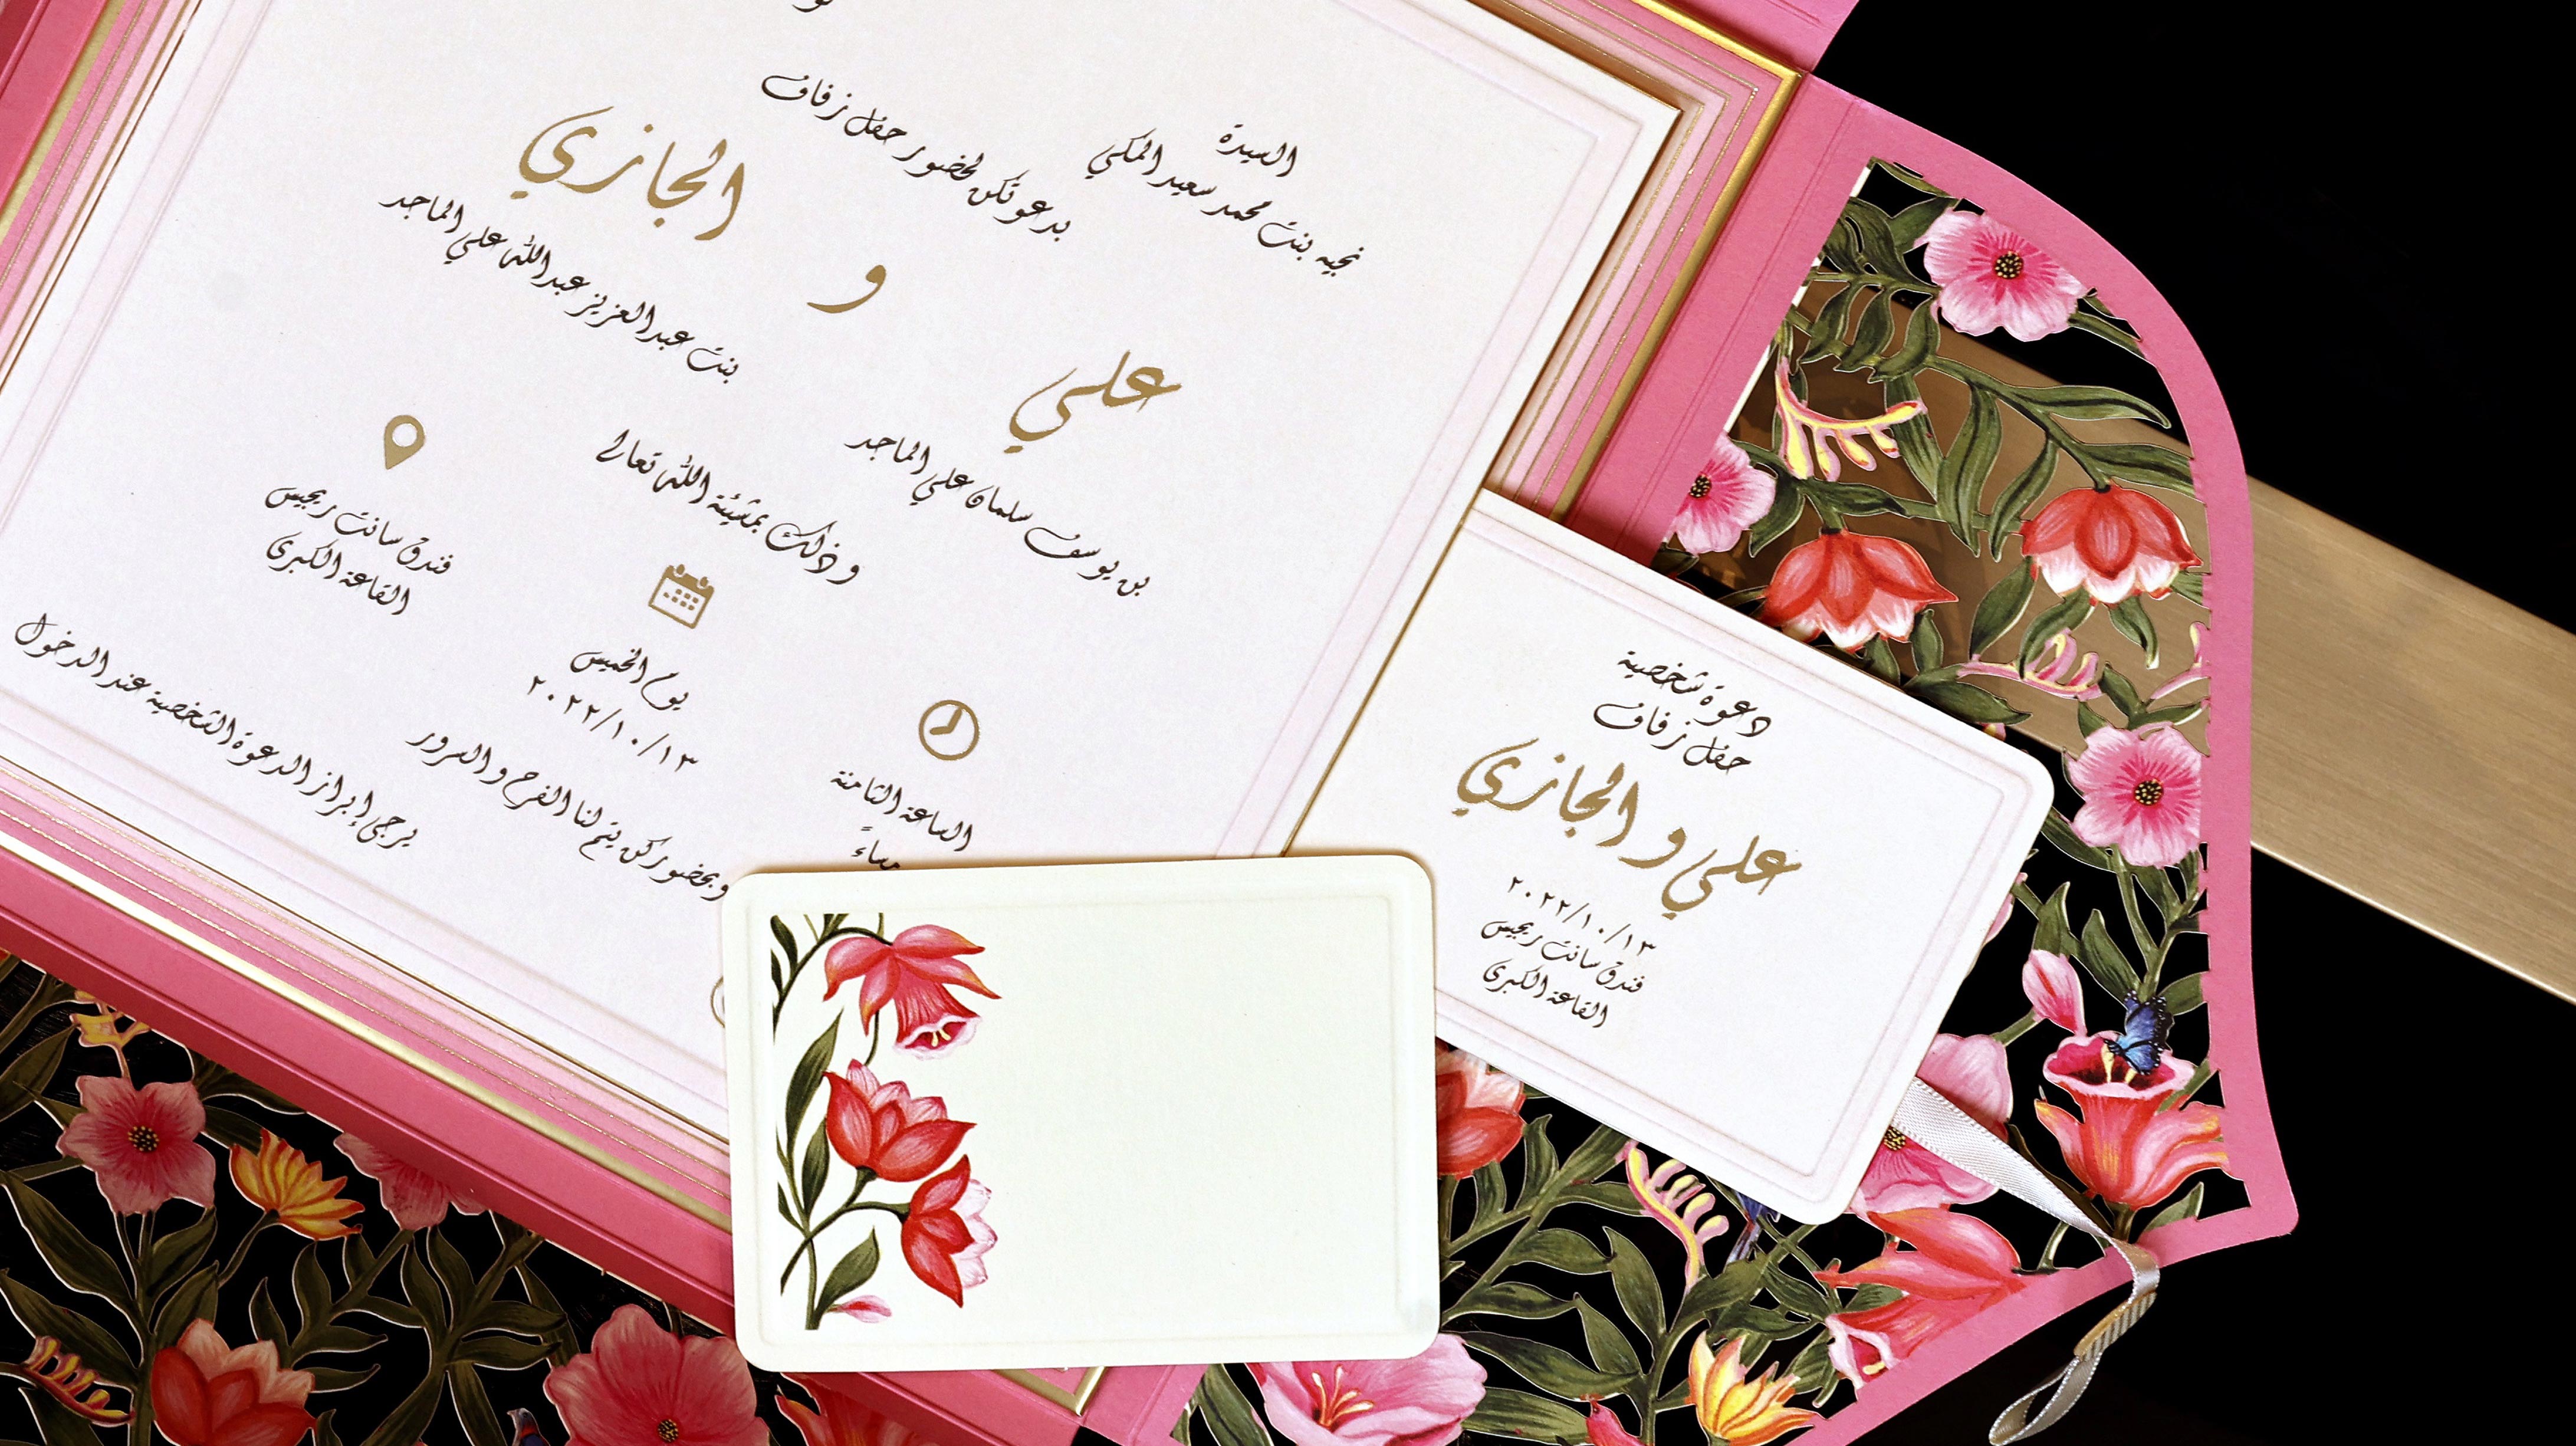 السيدة
نجيه بنت محمد سعيد المكي
بدعوتكن لحضور حفل زفاف
علي
و
الجازي
بن يوسف سلمان علي الماجد
بنت عبدالعزيز عبدالله علي الماجد
وذلك بمشيئة الله تعالى
الساعة الثامنة
مساءً
يوم الخميس
٢٠٢٢/١٠/١٣
فندق سانت ريجيس
القاعة الكبرى
وبحضوركن يتم لنا الفرح والسرور
يرجى إبراز الدعوة الشخصية عند الدخول
دعوة شخصية
حفل زفاف
علي و الجازي
٢٠٢٢/١٠/١٣
فندق سانت ريجيس
القاعة الكبرى